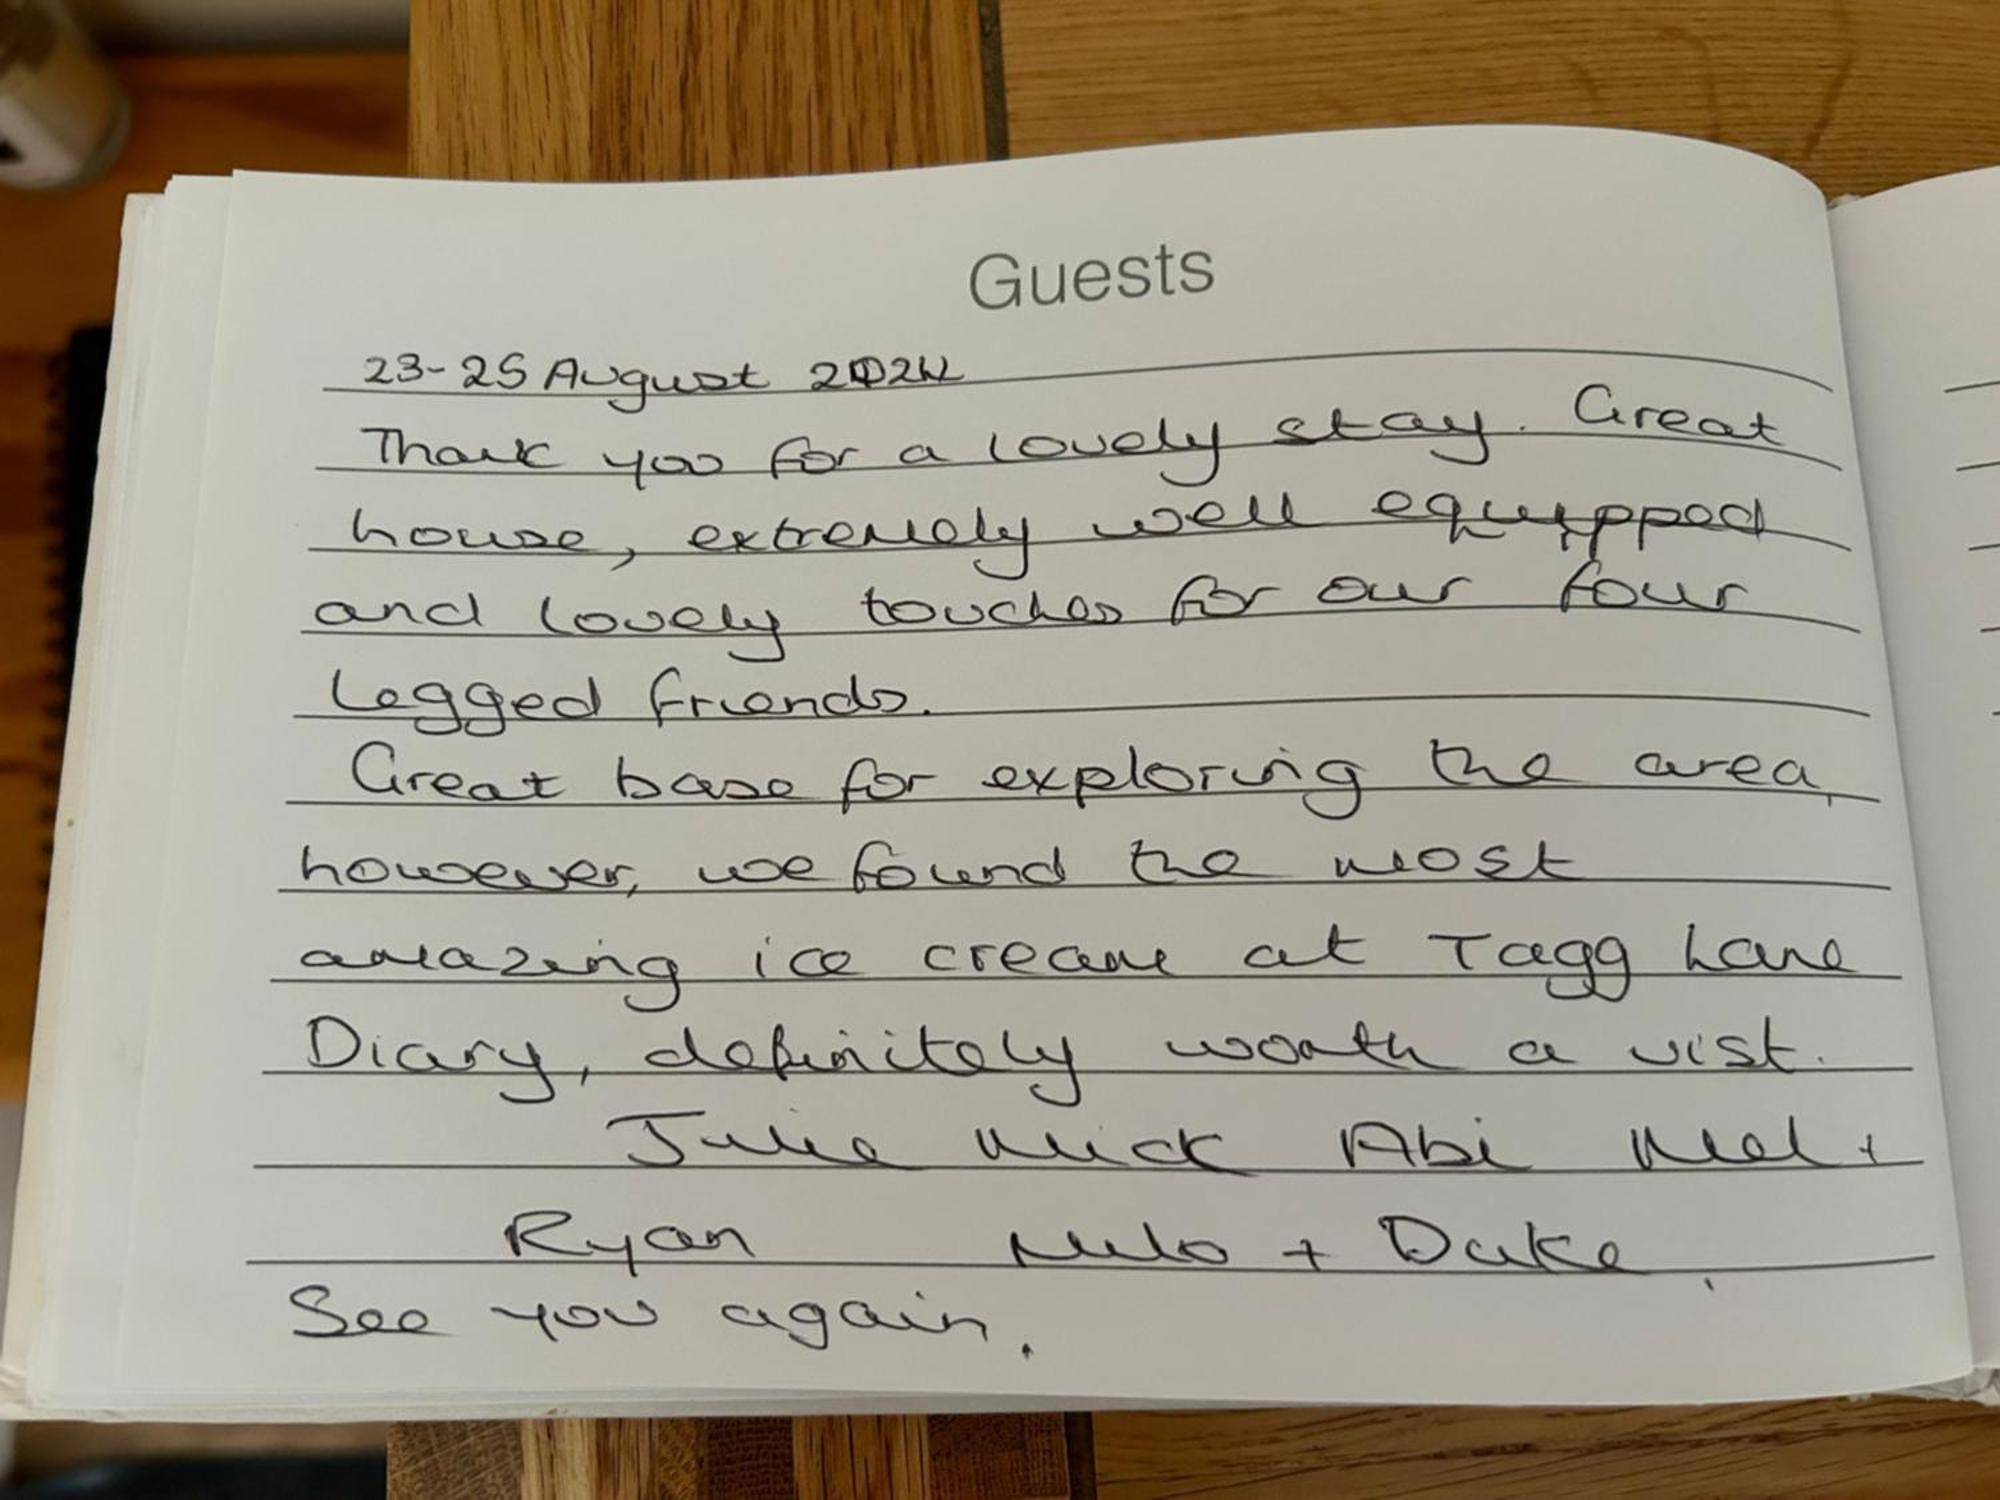 Guests
23-25 August 2024
Thank you for a lovely stay. Great
house, extremely well equipped
and lovely touches for our four
legged friends.
Great base for exploring the area,
however, we found the most
amazing ice cream at Tagg Lane
Diary, definitely worth a vist.
Julie Mick Abi Mel +
Ryan Milo + Duke.
See you again.